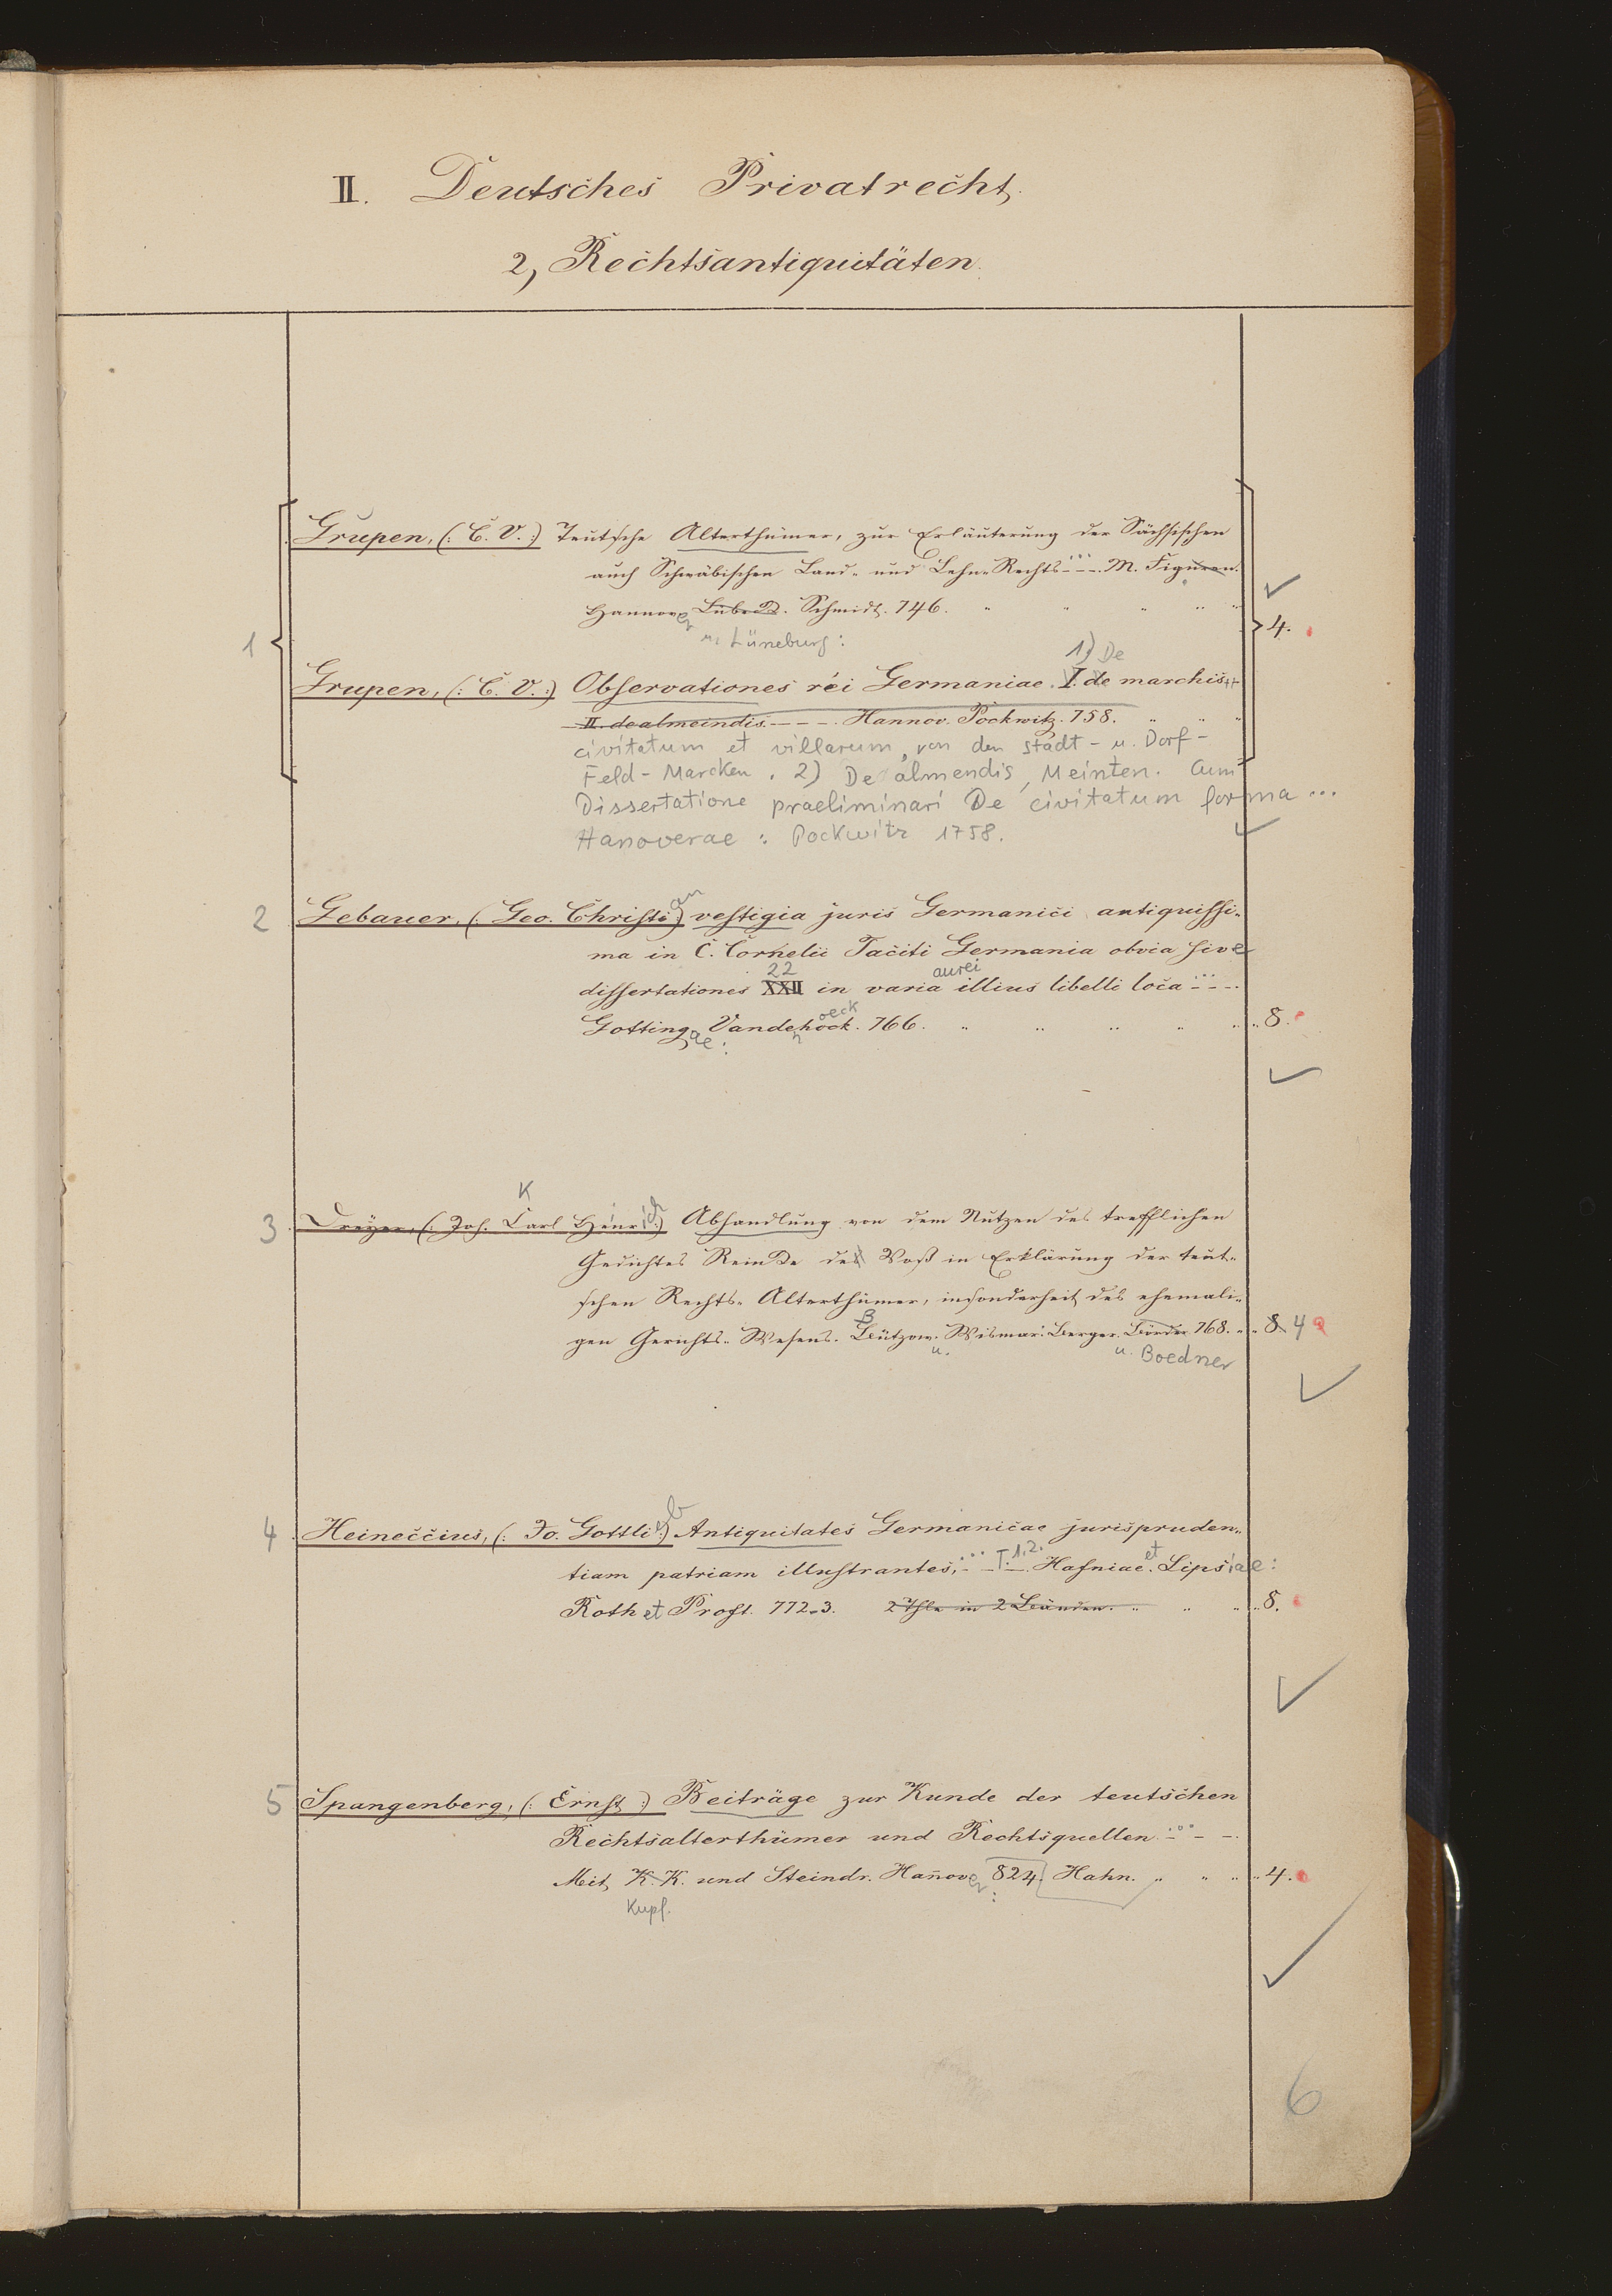 II. Deutsches Privatrecht.
2, Rechtsantiquitäten.
1
Grupen, (: C. V. :) Teutsche Alterthümer, zur Erläuterung der Sächsischen
auch Schwäbischen Land- und Lehn-Rechts ... M. Figuren.
Hannover Lübeck. Schmidt. 746.
4.
u. Lüneburg:
1) De
Grupen, (: C. V. :) Observationes rei Germaniae. I. de marchis
II. de almeindis. - - - . Hannov. Pockwitz. 758.
civitatum et villarum, von den Stadt- u. Dorf-
Feld-Marcken. 2) De almendis, Meinten. Cum
Dissertatione praeliminari De civitatum forma ...
Hanoverae : Pockwitz 1758.
2 Gebauer, (: Geo. Christian :) vestigia juris Germanici antiquissi-
ma in C. Cornelii Taciti Germania obvia sive
22 aurei
dissertationes XXII in varia illius libelli loca ...
oeck
Gottingae: Vandenhock. 766. 8.
K
3 Dreÿer, (: Joh. Carl Heinrich :) Abhandlung von dem Nutzen des trefflichen
Gedichtes Reincke des Voß in Erklärung der teut-
schen Rechts-Alterthümer, insonderheit des ehemali-
gen Gerichts-Wesens. Bützow. Wismar. Berger. Börder 768. 8. 4
u. u. Boedner
4 Heineccius, (: Jo. Gottlieb :) Antiquitates Germanicae jurispruden-
tiam patriam illustrantes, ... T. 1. 2. Hafniae et Lipsiae:
Roth et Proft. 772-3. 2 Thle in 2 Bänden. 8.
5 Spangenberg, (: Ernst :) Beiträge zur Kunde der teutschen
Rechtsalterthümer und Rechtsquellen ...
Mit K. K. und Steindr. Hañover: 824. Hahn. 4.
Kupf.
6